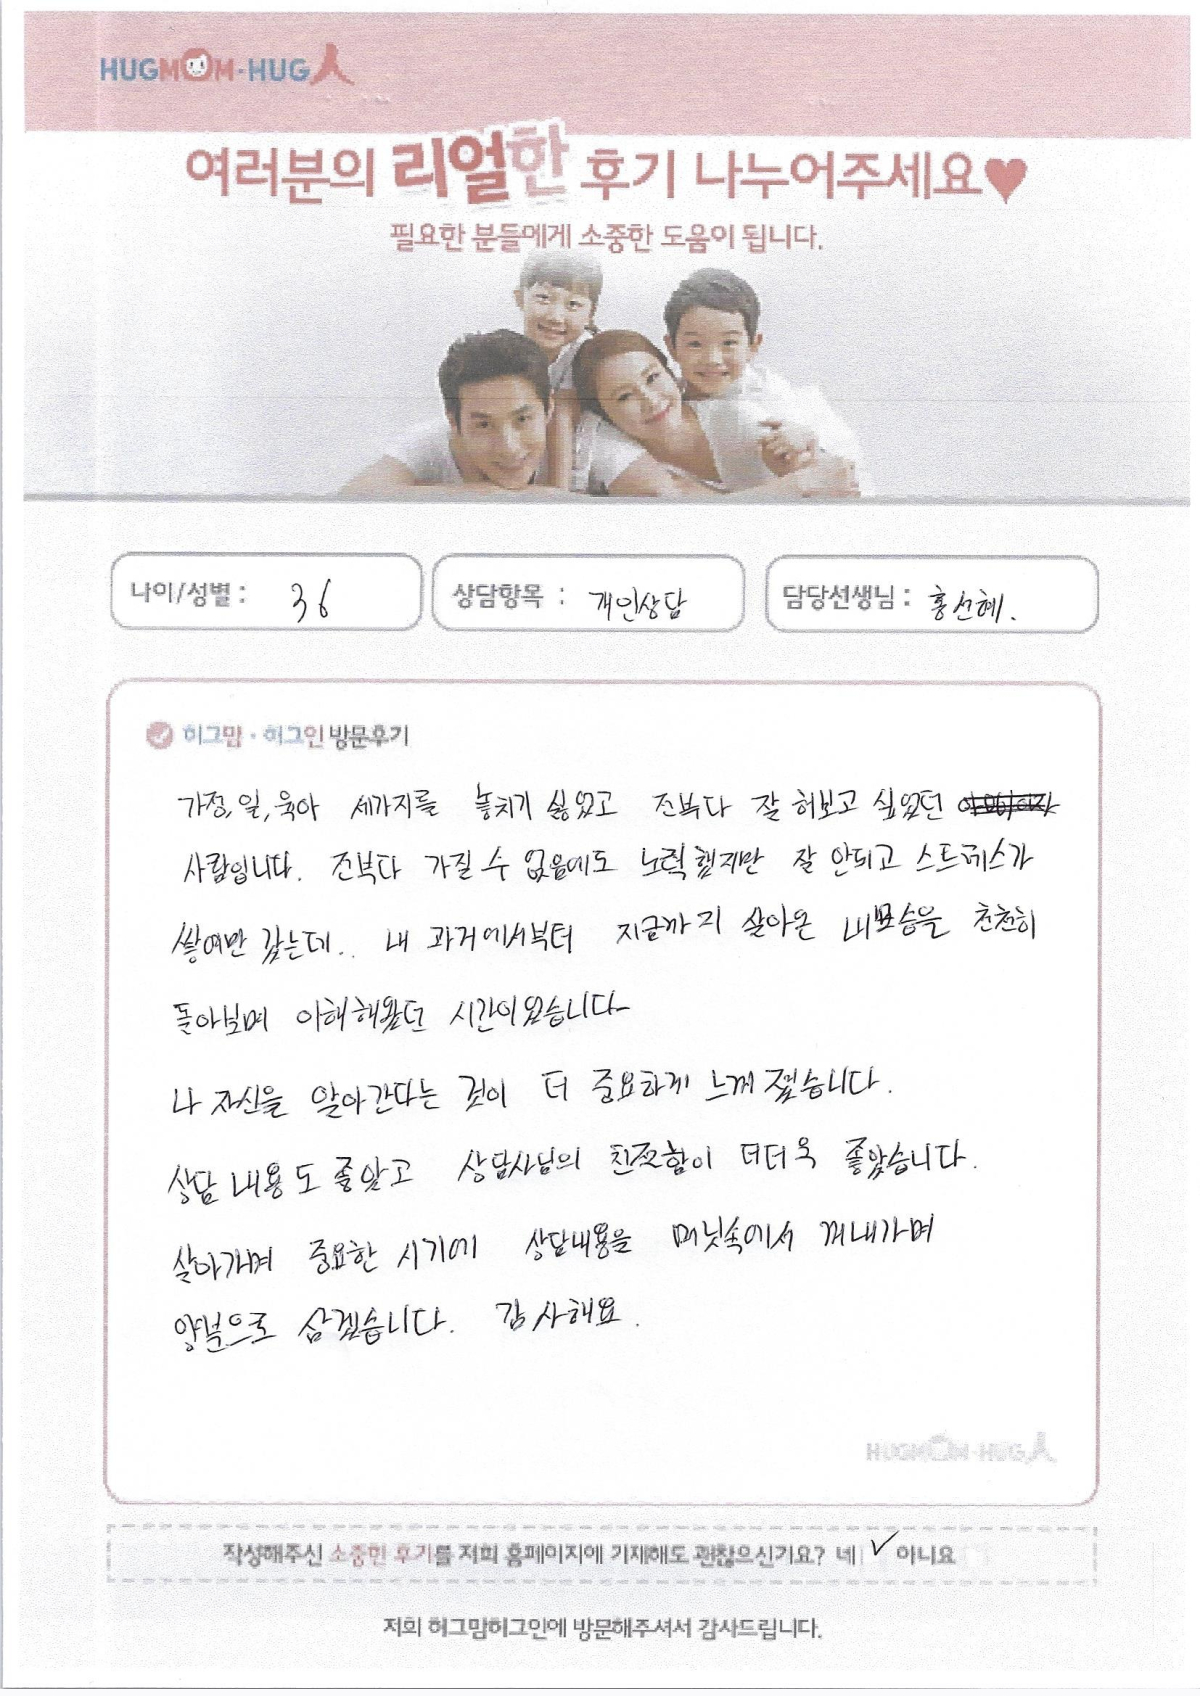 HUGMOM·HUG人
여러분의 리얼한 후기 나누어주세요♥
필요한 분들에게 소중한 도움이 됩니다.
나이/성별 : 36
상담항목 : 개인상담
담당선생님 : 홍선혜.
허그맘·허그인 방문후기
가정, 일, 육아 세가지를 놓치기 싫었고 전부다 잘 해보고 싶었던
사람입니다. 전부다 가질 수 없음에도 노력했지만 잘 안되고 스트레스가
쌓여만 갔는데.. 내 과거에서부터 지금까지 살아온 내모습을 천천히
돌아보며 이해해왔던 시간이었습니다
나 자신을 알아간다는 것이 더 중요하게 느껴졌습니다.
상담 내용도 좋았고 상담사님의 친절함이 더더욱 좋았습니다.
살아가며 중요한 시기에 상담내용을 머릿속에서 꺼내가며
양분으로 삼겠습니다. 감사해요.
HUGMOM·HUG人
작성해주신 소중한 후기를 저희 홈페이지에 기재해도 괜찮으신가요? 네 ✓ 아니요
저희 허그맘허그인에 방문해주셔서 감사드립니다.